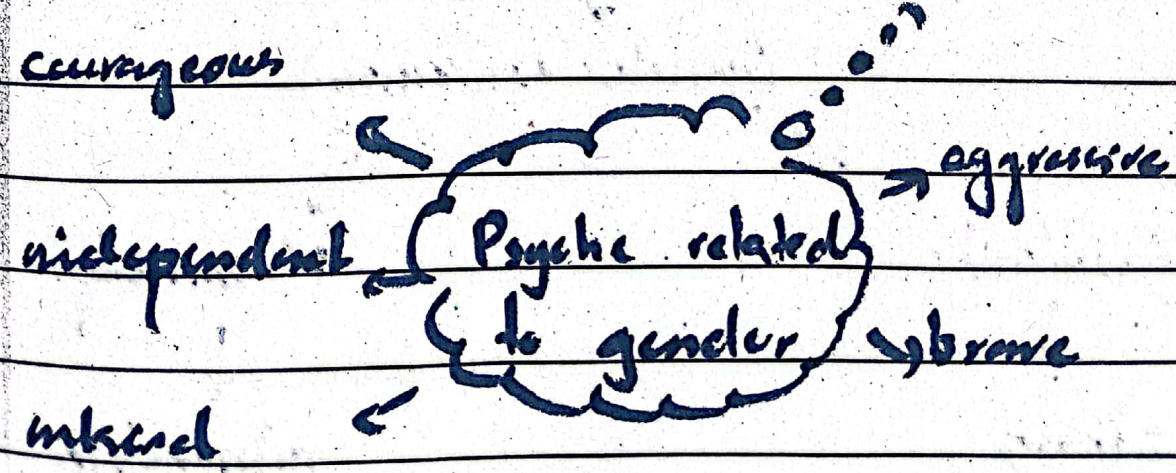 courageous
aggressive
independent
Psyche related
to gender
brave